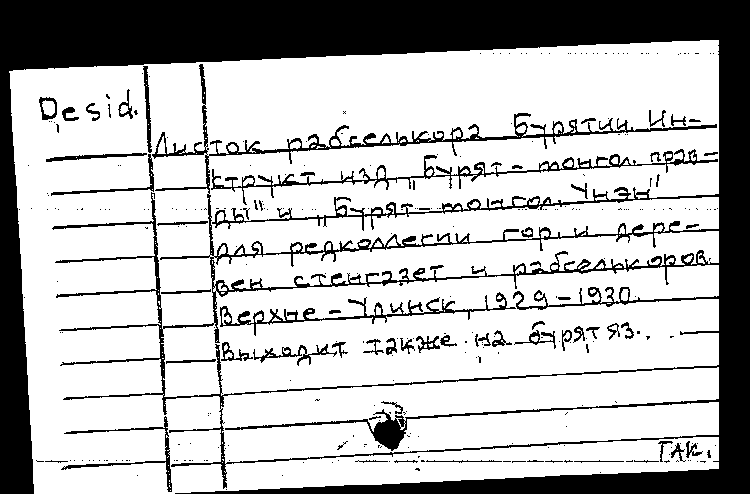 Desid.
Листок рабселькора Бурятии. Ин-
структ. изд. „Бурят-монгол. прав-
ды" и „Бурят-монгол. Унэн"
для редколлегии гор. и дере-
вен. стенгазет и рабселькоров.
Верхне-Удинск, 1929-1930.
Выходит также на бурят. яз.
ГАК.